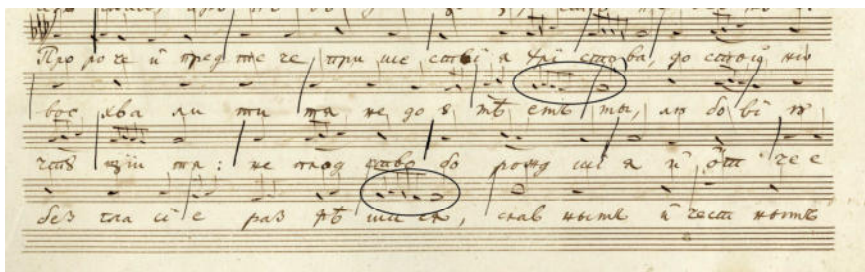 Про ро че и пред те че, при ше стві я Хрі сто ва, до стой но
вос хва ли ти тя не до ѣ мѣ емъ мы, лю бо ві ю
чтѹ щіи тя: не плод ство бо рожд ші я и от че е
без гла сі е раз рѣ ши ся, слав нымъ и чест нымъ